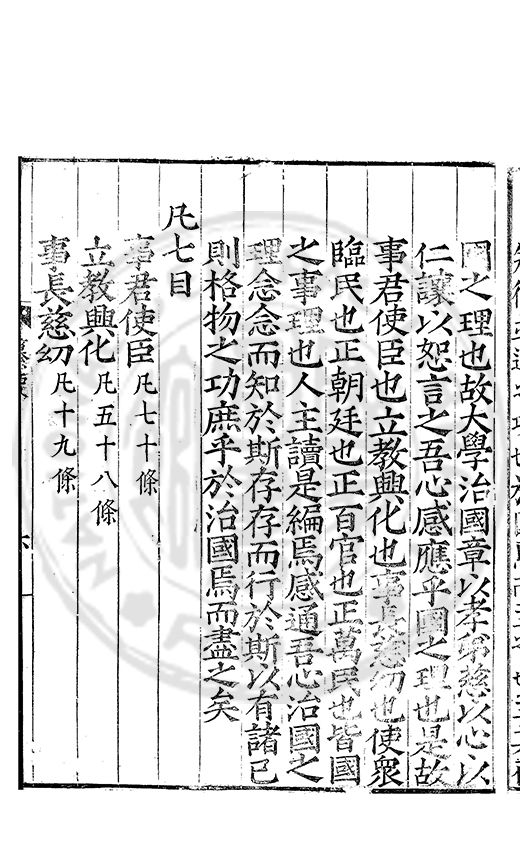 國之理也故大學治國章以孝弟慈以心以
仁讓以恕言之吾心感應乎國之理也是故
事君使臣也立教興化也事長慈幼也使衆
臨民也正朝廷也正百官也正萬民也皆國
之事理也人主讀是編焉感通吾心治國之
理念念而知於斯存存而行於斯以有諸己
則格物之功庶乎於治國焉而盡之矣
凡七目
事君使臣凡七十條
立教興化凡五十八條
事長慈幼凡十九條